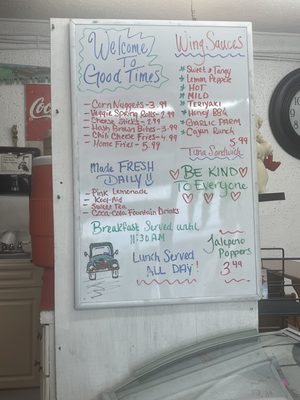 Welcome
To
Good Times
- Corn Nuggets - 3.99
- Veggie Spring Rolls - 2.99
- Cheese Sticks - 2.99
- Hash Brown Bites - 3.99
- Chili Cheese Fries - 4.99
- Home Fries - 5.99
Made FRESH
DAILY
- Pink Lemonade
- Kool-Aid
- Sweet Tea
- Coca-Cola Fountain Drinks
Breakfast Served until
11:30 AM
Lunch Served
ALL DAY!
Wing Sauces
* Sweet & Tangy
* Lemon Pepper
* HOT
* MILD
* TERIYAKI
* Honey BBQ
* GARLIC PARM
* Cajun Ranch
5.99
Tuna Sandwich
BE KIND
To Everyone
Jalapeno
Poppers
3.99
Coca